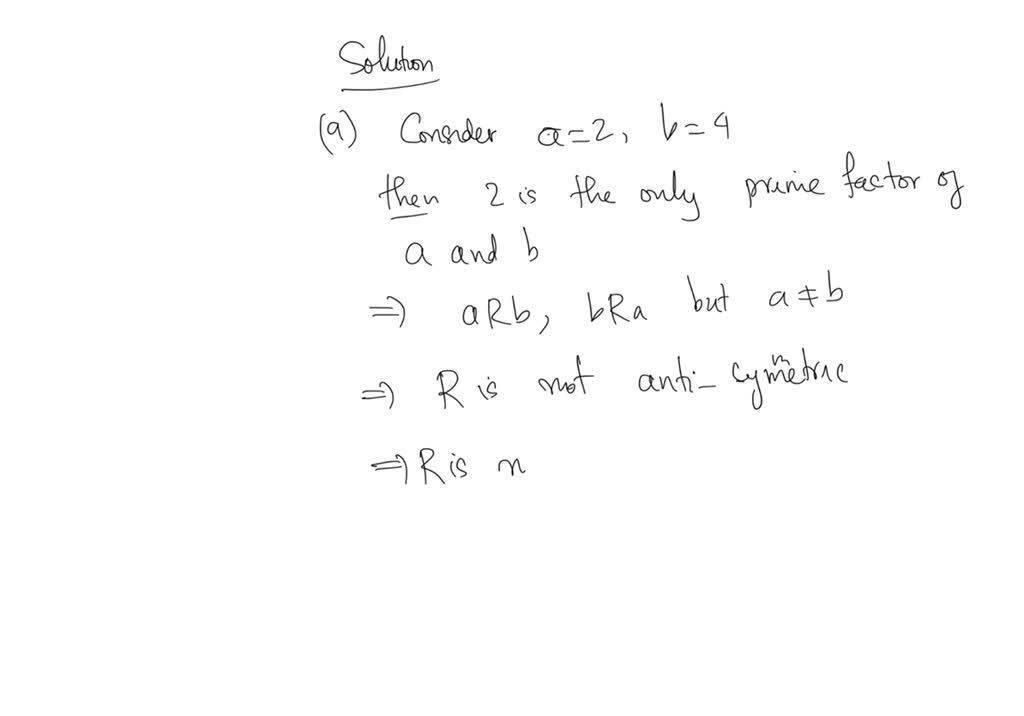 Solution
(a) Consider a=2, b=4
then 2 is the only prime factor of
a and b
⇒ aRb, bRa but a≠b
⇒ R is not anti-cymmetric
⇒ R is n